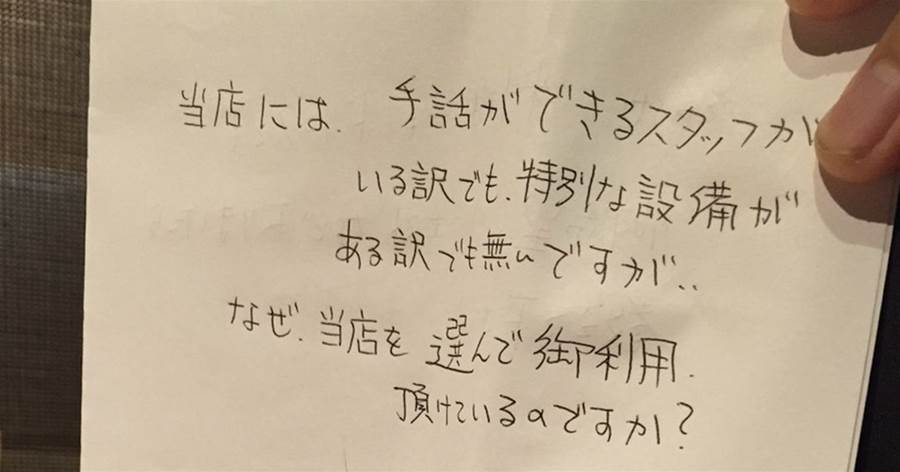 当店には、手話ができるスタッフが
いる訳でも、特別な設備が
ある訳でも無いですが、、
なぜ、当店を選んで御利用、
頂けているのですか?